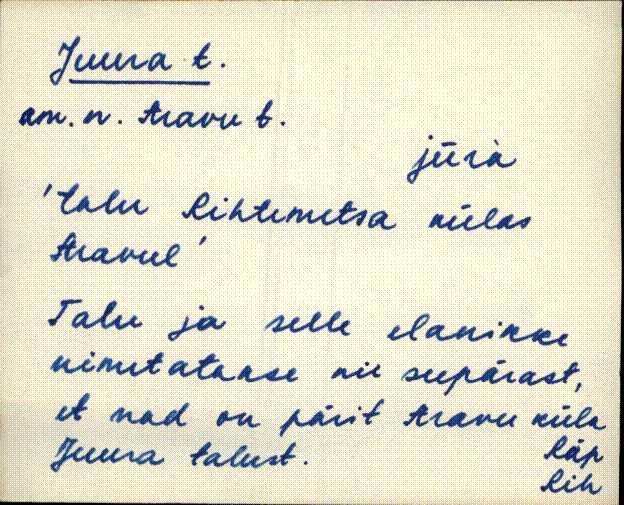 Juura t.
am. n. Aravu t.
'talu Rihtemetsa külas
Aravul'
Talu ja selle elanikke
nimetatakse nii seepärast,
et nad on pärit Aravu küla
Juura talust. Räp
Rih